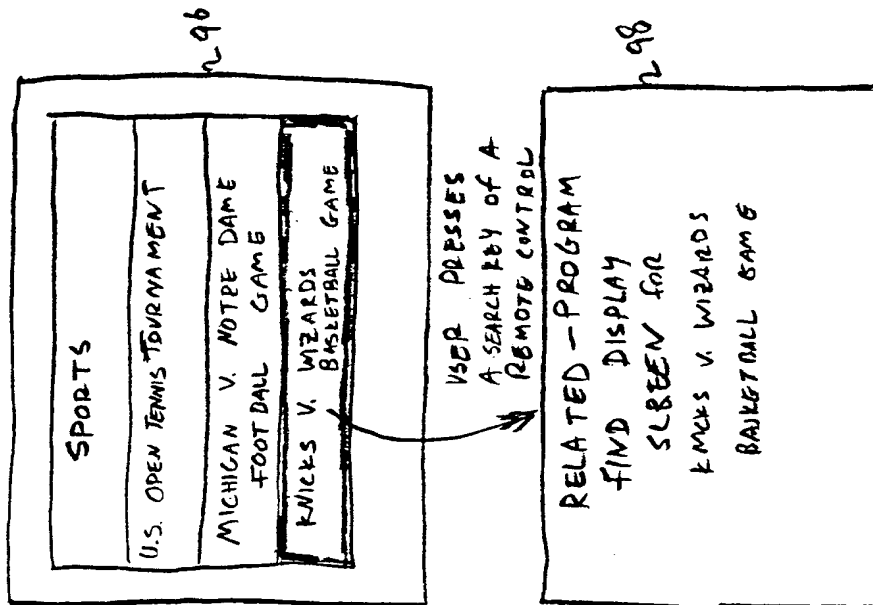 SPORTS
U.S. OPEN TENNIS TOURNAMENT
MICHIGAN V. NOTRE DAME
FOOTBALL GAME
KNICKS V. WIZARDS
BASKETBALL GAME
96
USER PRESSES
A SEARCH KEY OF A
REMOTE CONTROL
RELATED-PROGRAM
FIND DISPLAY
SCREEN FOR
KNICKS V. WIZARDS
BASKETBALL GAME
98